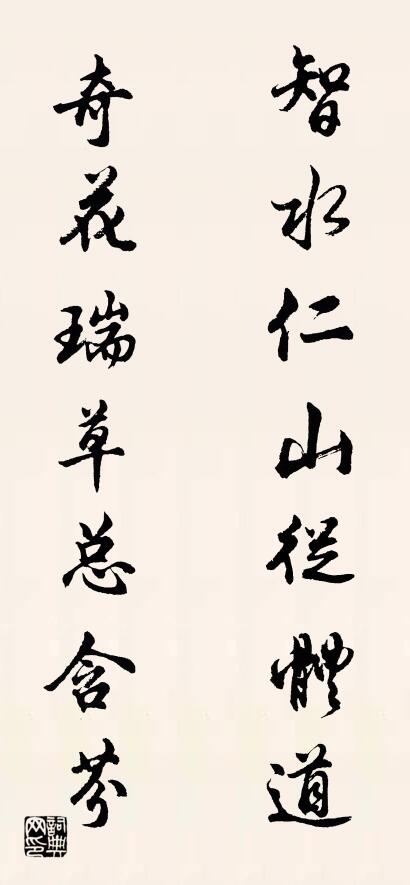 智水仁山從體道
奇花瑞草总含芬
詞典網印